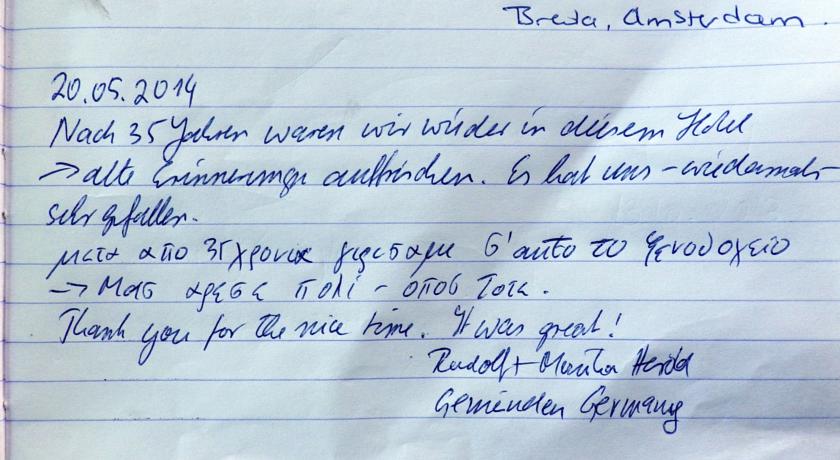 Breda, Amsterdam.
20.05.2014
Nach 35 Jahren waren wir wieder in diesem Hotel
→ alte Erinnerungen auffrischen. Es hat uns - wiedermal -
sehr gefallen.
μετα απο 35 χρονια γιριςαμε σ'auto το ξενοδοχείο
→ Μας αρεσε πολί - οπος τοτε.
Thank you for the nice time. It was great!
Rudolf + Marika
Gemünden Germany